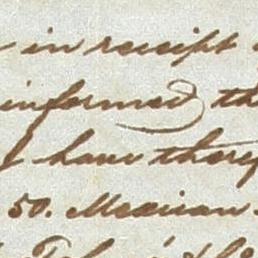 in receipt
informed th
I have there
50. Mexican